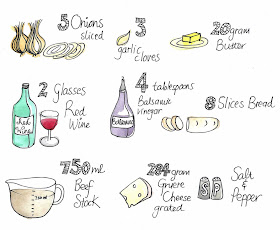 5 Onions
sliced
3
garlic
cloves
20gram
Butter
2 Glasses
Red
Wine
Red
Wine
4 tablespons
Balsamic
vinegar
Balsamic
8 Slices Bread
750ml
Beef
Stock
750 ml
284gram
Gruyere
Cheese
grated
S P
Salt
&
Pepper